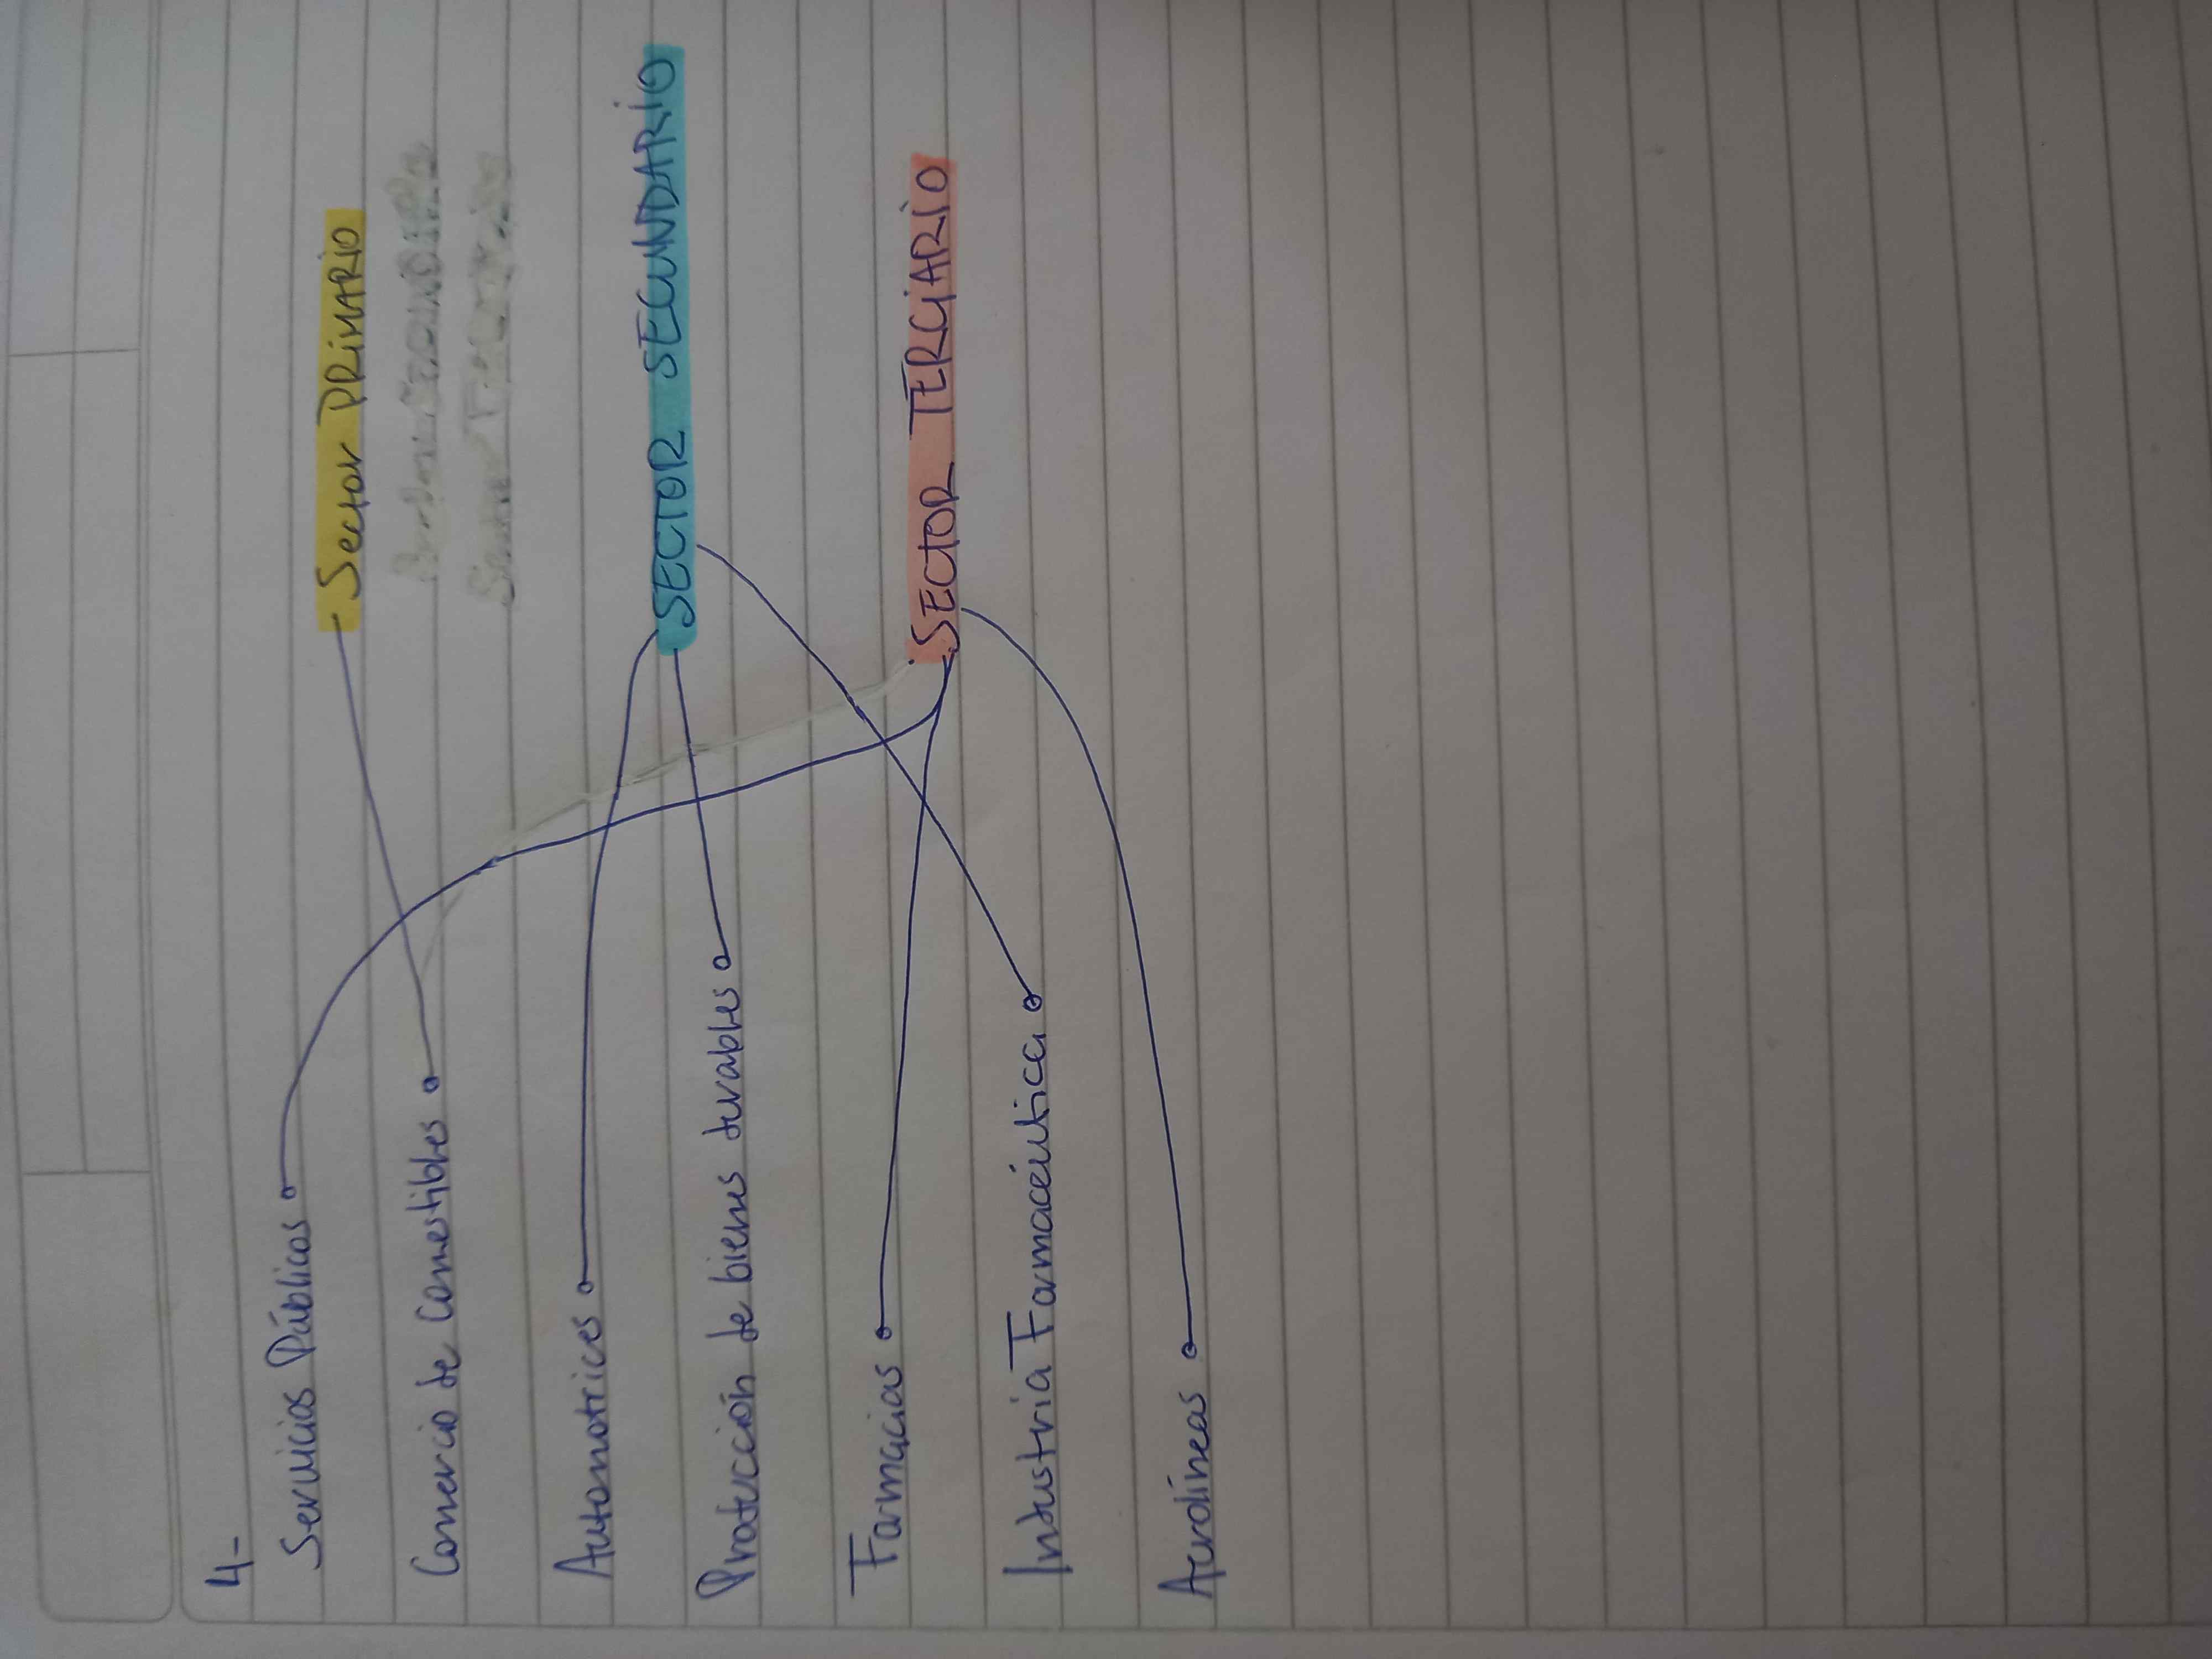 4-
Servicios Públicos
Sector PRiMARiO
Comercio de Comestibles
Automotrices
SECTOR SECUNDARiO
Producción de bienes durables
Farmacias
SECTOR TERCiARiO
Industria Farmacéutica
Aerolíneas